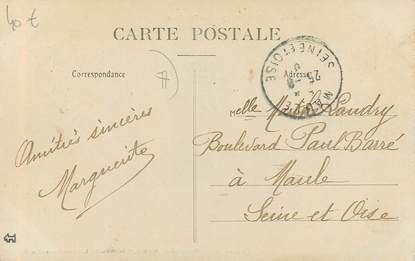 40 €
CARTE POSTALE
Correspondance
Adresse
SEINE ET OISE
25 - 8
Melle Landry
Boulevard Paul Barré
à Maule
Seine et Oise
Amitiés sincères
Marguerite